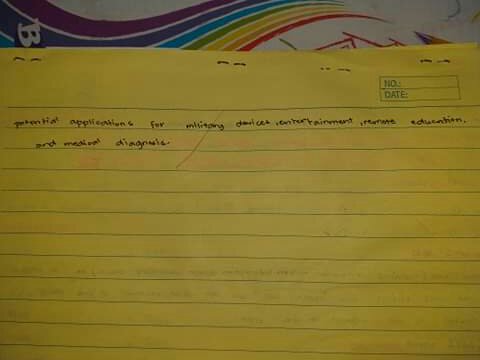 B
NO.:
DATE:
potential applications for military devices, entertainment, remote education,
and medical diagnosis.